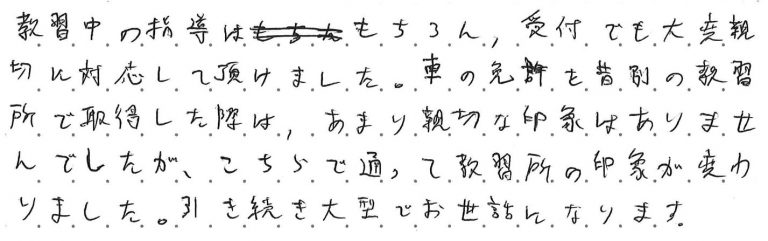 教習中の指導はもちろん,受付でも大変親
切に対応して頂けました。車の免許を昔別の教習
所で取得した際は,あまり親切な印象はありませ
んでしたが、こちらで通って教習所の印象が変わ
りました。引き続き大型でお世話になります。